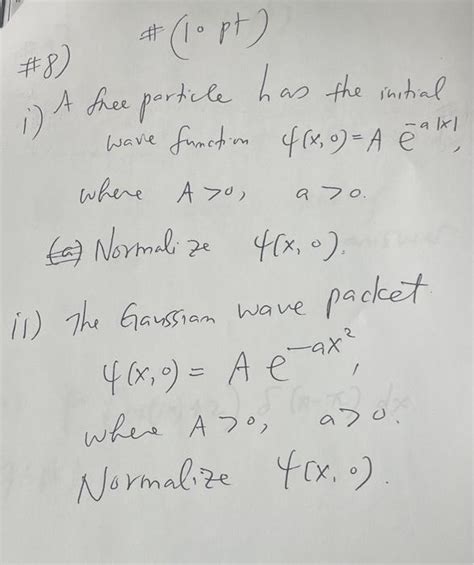 # (10 pt)
#8)
i) A free particle has the initial
wave function ψ(x,0) = A e^{-a|x|},
where A>0, a>0.
(a) Normalize ψ(x,0).
ii) The Gaussian wave packet
ψ(x,0) = A e^{-ax²},
where A>0, a>0.
Normalize ψ(x,0).